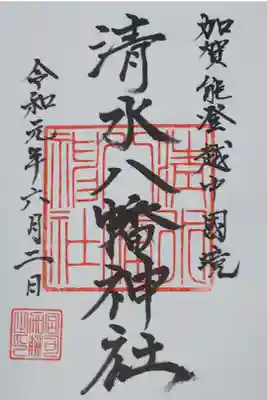 加賀能登越中国境
清水八幡神社
令和元年六月二日